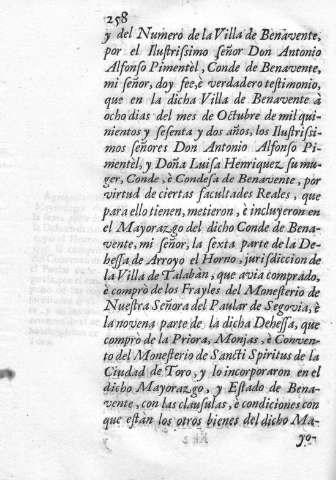 258
y del Numero de la Villa de Benavente,
por el Ilustrissimo señor Don Antonio
Alfonso Pimentèl, Conde de Benavente,
mi señor, doy fee, è verdadero testimonio,
que en la dicha Villa de Benavente à
ocho dias del mes de Octubre de mil qui-
nientos y sesenta y dos años, los Ilustrissi-
mos señores Don Antonio Alfonso Pi-
mentèl, y Doña Luisa Henriquez su mu-
ger, Conde, è Condesa de Benavente, por
virtud de ciertas facultades Reales, que
para ello tienen, metieron, è incluyeron en
el Mayorazgo del dicho Conde de Bena-
vente, mi señor, la sexta parte de la De-
hessa de Arroyo el Horno, jurisdiccion de
la Villa de Talabàn, que avia comprado,
è comprò de los Frayles del Monesterio de
Nuestra Señora del Paular de Segovia, è
la novena parte de la dicha Dehessa, que
comprò de la Priora, Monjas, è Conven-
to del Monesterio de Sancti Spiritus de la
Ciudad de Toro, y lo incorporaron en el
dicho Mayorazgo, y Estado de Bena-
vente, con las clausulas, è condiciones con
que estàn los otros bienes del dicho Ma-
yo-